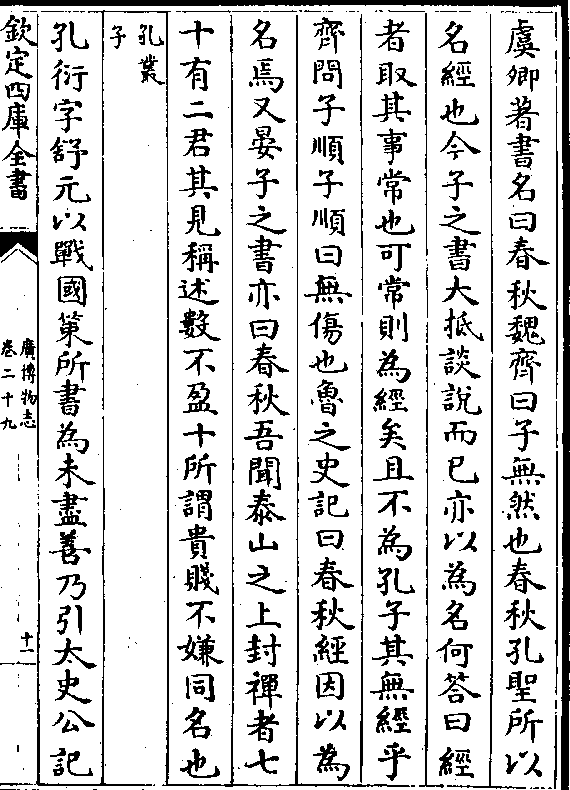 虞卿著書名曰春秋魏齊曰子無然也春秋孔聖所以
名經也今子之書大抵談說而已亦以為名何答曰經
者取其事常也可常則為經矣且不為孔子其無經乎
齊問子順子順曰無傷也魯之史記曰春秋經因以為
名焉又晏子之書亦曰春秋吾聞泰山之上封禪者七
十有二君其見稱述數不盈十所謂貴賤不嫌同名也
孔叢
子
孔衍字舒元以戰國策所書為未盡善乃引太史公記
欽定四庫全書
廣博物志
卷二十九
十一